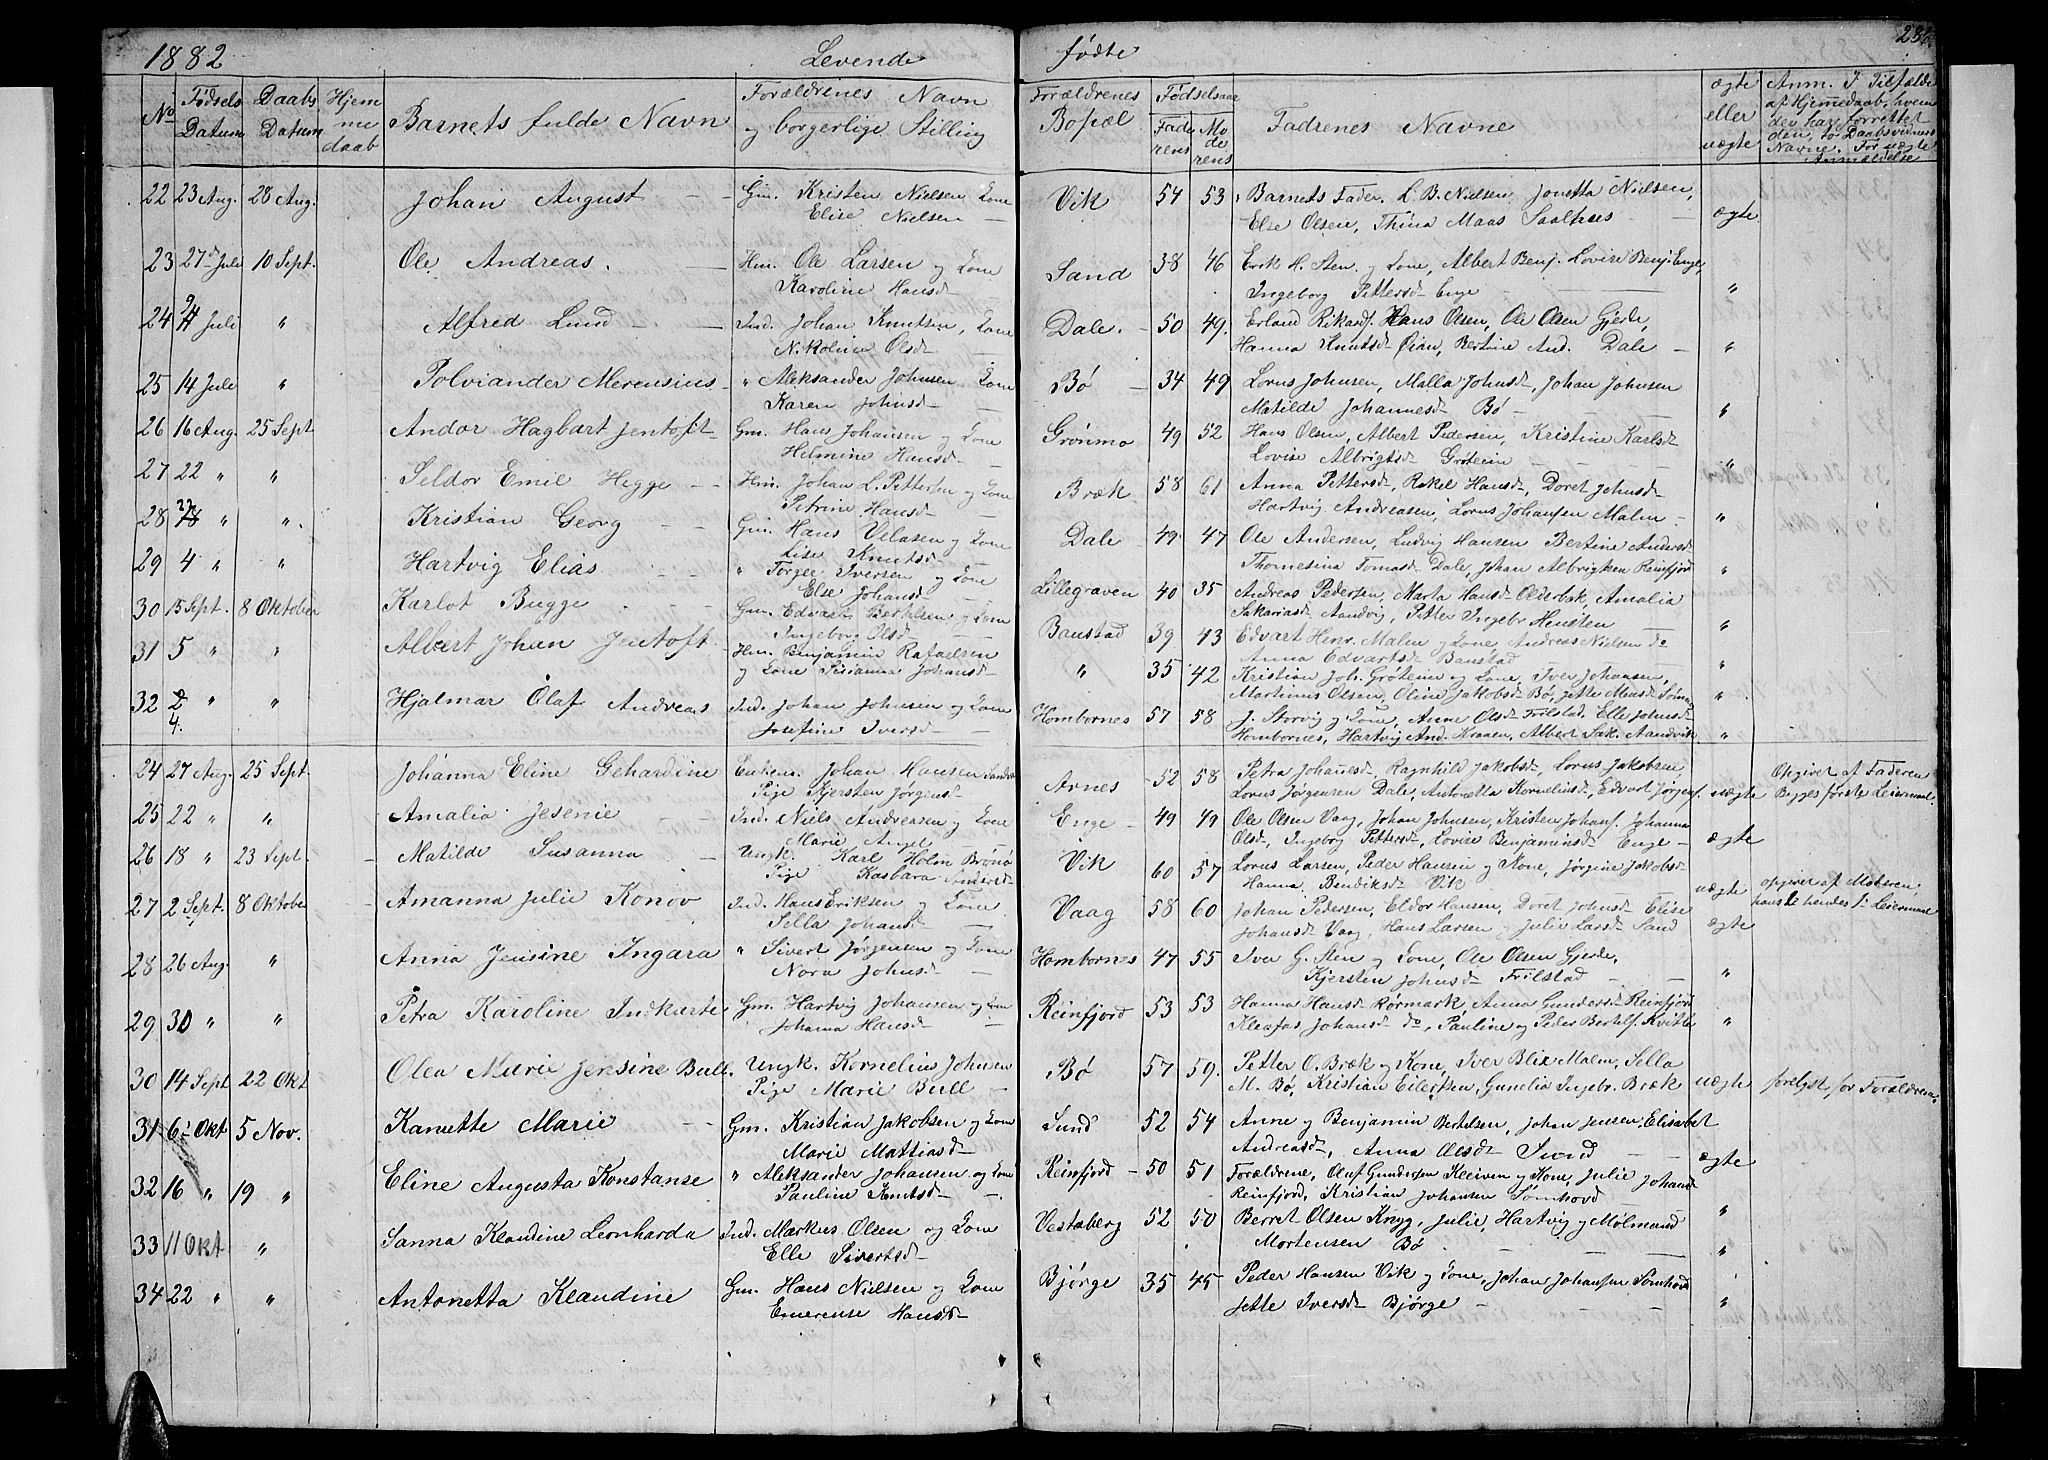 1882 Levende fødte 236
No Fødsels Datum Daabs Datum Hjemme daab Barnets fulde Navn Forældrenes Navn og borgerlige Stilling Forældrenes Bopæl Fødselsaar Faderens Moderens Fadrenes Navne ægte eller uægte Anm. I Tilfælde af Hjemmedaab, hvem der har forrettet den, to Daabsvidners Navne. For uægte Anmeldelse
22 23 Aug. 28 Aug. Johan August Gm. Kristen Nielsen Kone Vik 54 53 Barnets Fader. L. B. Nielsen Jonetta Nielsen,
Elise Nielsen Else Olsen, Thina Maas Saalhus ægte
23 27 Juli 10 Sept. Ole Andreas. Hm. Ole Larsen og Kone Sand 38 46 Erik H. Sten og Kone, Albert Benj. Lovise Benj. Enge,
Karoline Hansd Ingeborg Pettersd Enge "
24 Juli " Alfred Lund Ind. Johan Knutsen, Kone Dale. 50 49. Erland Rikardf. Hans Olsen, Ole Olsen Gjerde,
Nikoline Olsd Hanna Knutsd Øian, Bertine And. Dale "
25 14 Juli " Polviander Merensius " Aleksander Johnsen Kone Bø 34 49 Lorns Johnsen, Malla Johnsd, Johan Johnsen
Karen Johnsd Matilde Johannesd Bø "
26 16 Aug. 25 Sept. Andor Hagbart Jentoft Gm. Hans Johansen og Kone Grönmo 49 52 Hans Olsen, Albert Pedersen, Kristine Karlsd
Helmine Hansd Lovise Albrigtsd Grøteim "
27 22 " " Seldor Emil Hegge Hm. Johan L. Pettersen og Kone Bræk 58 61 Anna Pettersd, Rakel Hansd, Doret Johnsd
Petrine Hansd Hartvig Andreasen, Lorns Johansen Malm "
28 " ". Kristian Georg Gm. Hans Velasen og Kone Dale 49 47 Ole Andersen, Ludvig Hansen Bertine Andersd
Lise Knutsd Thomesina Tomasd Dale, Johan Albrigtsen Reinfjord "
29 4 " " Hartvig Elias " Torger Iversen og Kone Lillegraven 40 35 Andreas Pedersen, Marta Hansd Olderbak, Amalia
Else Johansd Sakariasd Aandvig, Petter Ingebr "
30 15 Sept. 8 Oktober Karlot Bugge Gm. Edvart Bertelsen og Kone Baustad 39 43 Edvart Henr. Malm og Kone Andreas Nielsen do
Ingeborg Olsd Anna Edvartsd Baustad "
31 5 " " Albert Johan Jentoft Hm. Benjamin Rafaelsen " 35 42 Kristian Joh. Grøteim og Kone, Iver Johansen,
og Kone Johansd Martinus Olsen, Oline Jakobsd Bø, Jette "
32 2 " " Hjalmar Olaf Andreas Ind. Johan Johnsen og Kone Hombornes 57 58 J. Storvig og Kone, Anne Olsd Trilstad, Elle Johnsd
4. Josefine Iversd Hombornes, Hartvig And. Kraaen, Albert Sak. Aandvik "
24 27 Aug. 25 Sept. Johanna Eline Gehardine Enkem. Johan Hansen Arnes 52 58 Petra Johanesd Ragnhild Jakobsd, Lorns Jakobsen, Opgivet af Faderen
Pige Kjersten Jørgensd Lorns Jørgensen Dale, Antonetta Kornelinsd, Edvart Jørgenf. uægte Begges første Leiermaal.
25 22 " " Amalia Jesenie Ind. Niels Andreasen og Kone Enge 49 49 Ole Olsen Vaag, Johan Johnsen, Kristen Johanf. Johanna
Marie Angel Olsd, Ingeborg Pettersd, Lovise Benjaminsd Enge ægte
26 18 " 23 Sept. Matilde Susanna Ungk. Karl Holm Brönö Vik 60 57 Lorns Larsen, Peder Hansen og Kone, Jørgine Jakobsd
Pige Kasbara Andersd Hanna Bendiksd Vik uægte opgivet af Moderen,
27 2 Sept. 8 Oktober Amanna Julie Konov Ind. Hans Eriksen og Kone Vaag 58 60 Johan Pedersen, Eldor Hansen, Doret Johnsd Elise
Sella Johansd Johansd Vaag, Hans Larsen og Julie Larsd Sand ægte hans 2 hendes 1ste Leiermaal
28 26 Aug. " Anna Jensine Ingara " Sivert Jørgensen og Kone Hombornes 47 55 Iver G. Sten og Kone, Ole Olsen Gjerde,
Nora Johnsd Kjersten Johnsd Trilstad "
29 30 " " Petra Karoline Indkarte Gm. Hartvig Johansen og Kone Reinfjord 53 53 Hanna Hansd Rørmark, Anna Gundersd Reinfjord
Johanna Hansd Kleafas Johansd do, Pauline og Peder Bertelf. Kvitte "
30 14 Sept 22 Okt Olea Marie Jensine Bull. Ungk. Kornelius Johnsen Bø 57 59. Petter O. Bræk og Kone, Iver Blix Malm, Sella
Pige Marie Bull M. Bø, Kristian Eilertsen, Gunelia Ingebr. Bræk uægte forelyst for Forældrene.
31 6 Okt 5 Nov. Kanutte Marie Gm. Kristian Jakobsen og Kone Sund 52 54 Anne og Benjamin Bertelsen, Johan Jensen, Elisabet
Marie Mattiasd Andreasd, Anna Olsd Sund ægte
32 16 " 19 " Eline Augusta Konstanse " Aleksander Johansen og Kone Reinfjord 50 51 Forældrene, Oluf Gundersen Kleiven og Kone, Julie Johansd
Pauline Knutsd Reinfjord, Kristian Johansen Sömhovd "
33 11 Okt " Sanna Klaudine Leonharda Ind. Markus Olsen og Kone Vestaberg 52 50 Berret Olsen Knyg, Julie, Hartvig og Molmand
Elle Sivertsd Mortensen Bø "
34 22 " " Antonetta Klaudine Gm. Hans Nielsen og Kone Bjørge 35 45 Peder Hansen Vik og Kone, Johan Johansen Sömhovd
Emerense Hansd Jette Iversd Bjørge "